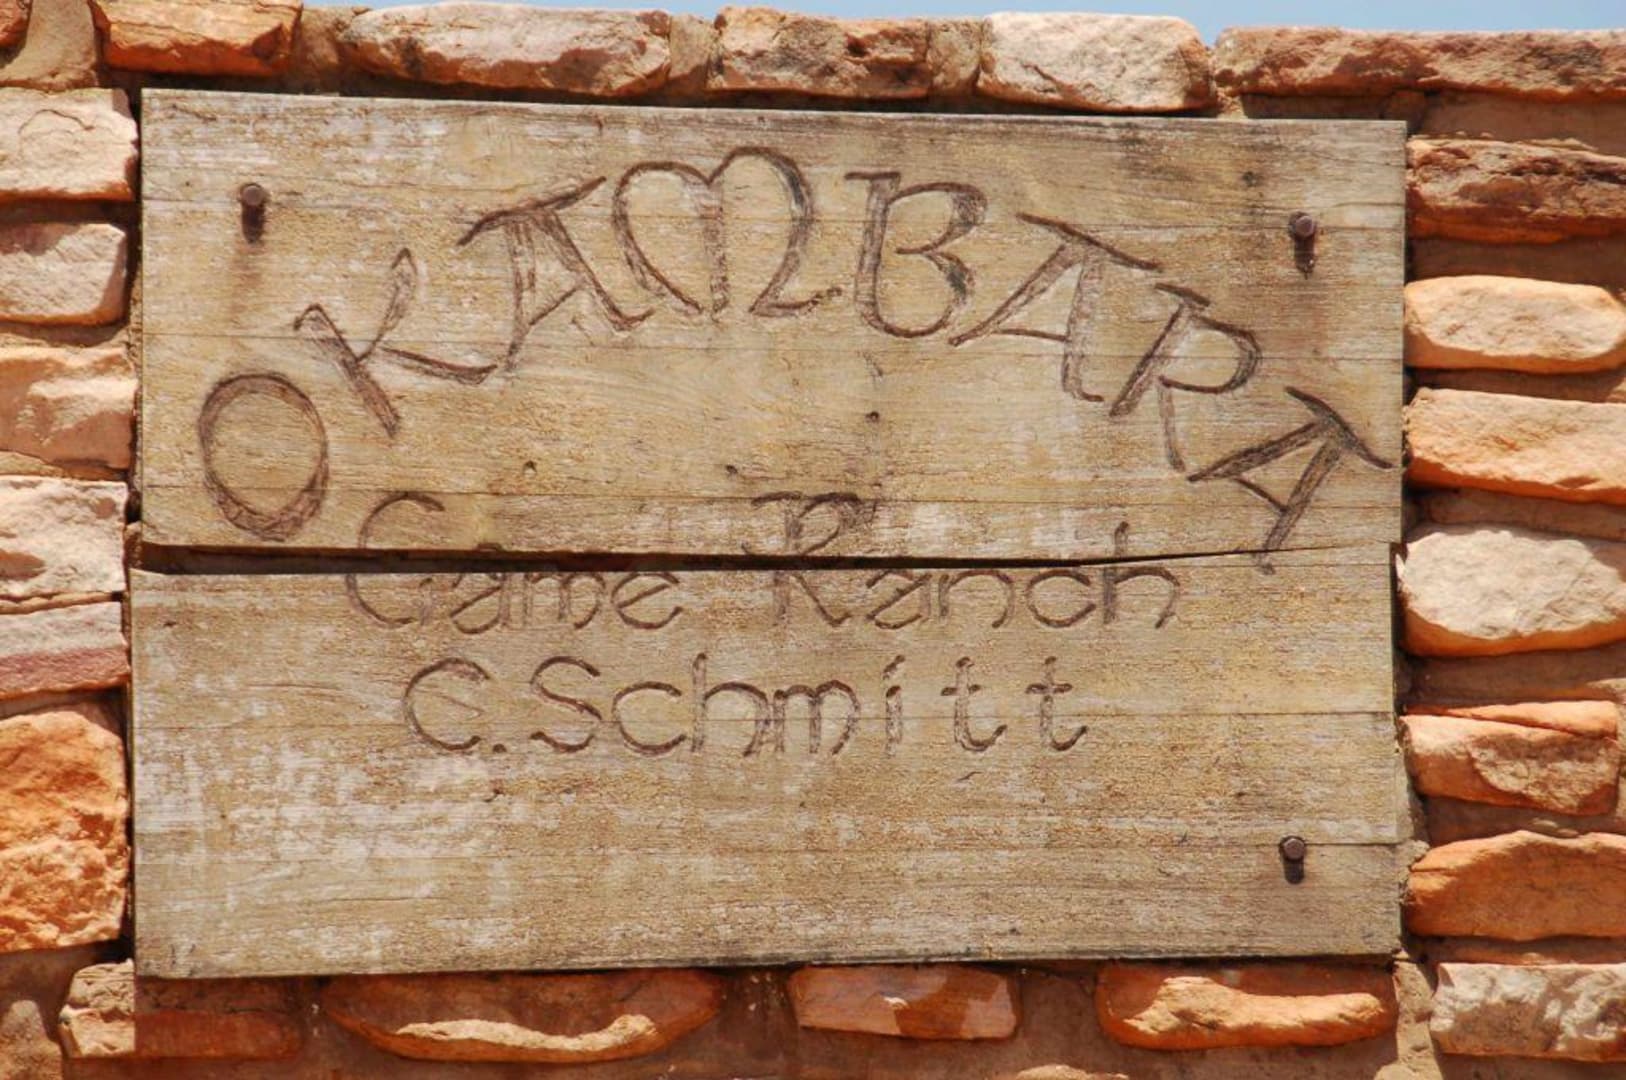 OKAMBARA
Game Ranch
E. Schmitt